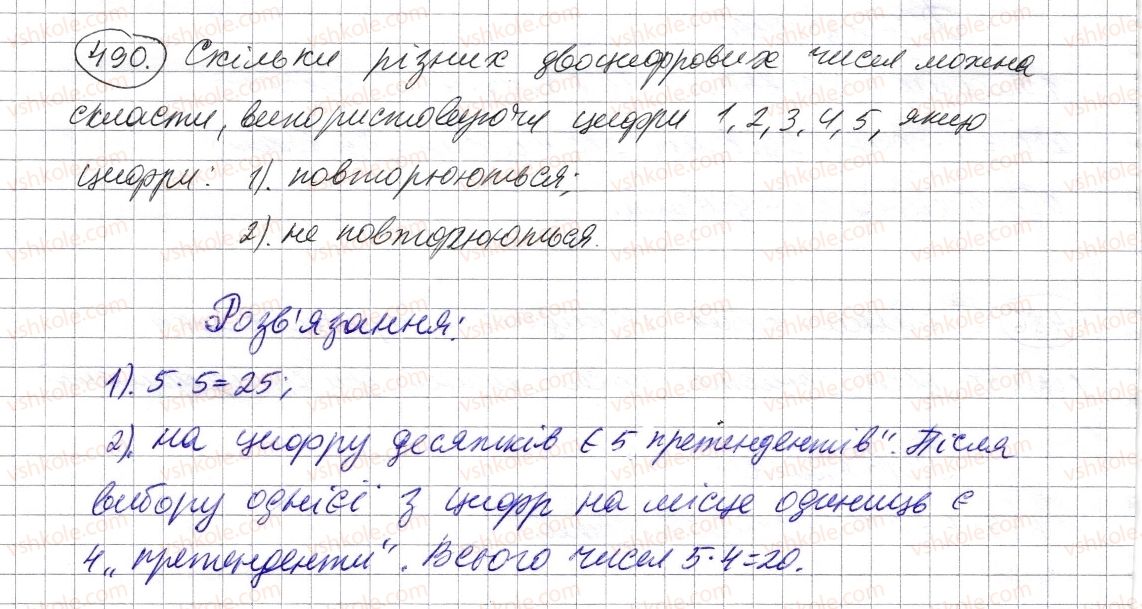 490. Скільки різних двоцифрових чисел можна
скласти, використовуючи цифри 1, 2, 3, 4, 5, якщо
цифри: 1). повторюються;
2). не повторюються.
Розв'язання:
1). 5 · 5 = 25;
2). на цифру десятків є 5 „претендентів“. Після
вибору однієї з цифр на місце одиниць є
4 „претенденти“. Всього чисел 5 · 4 = 20.